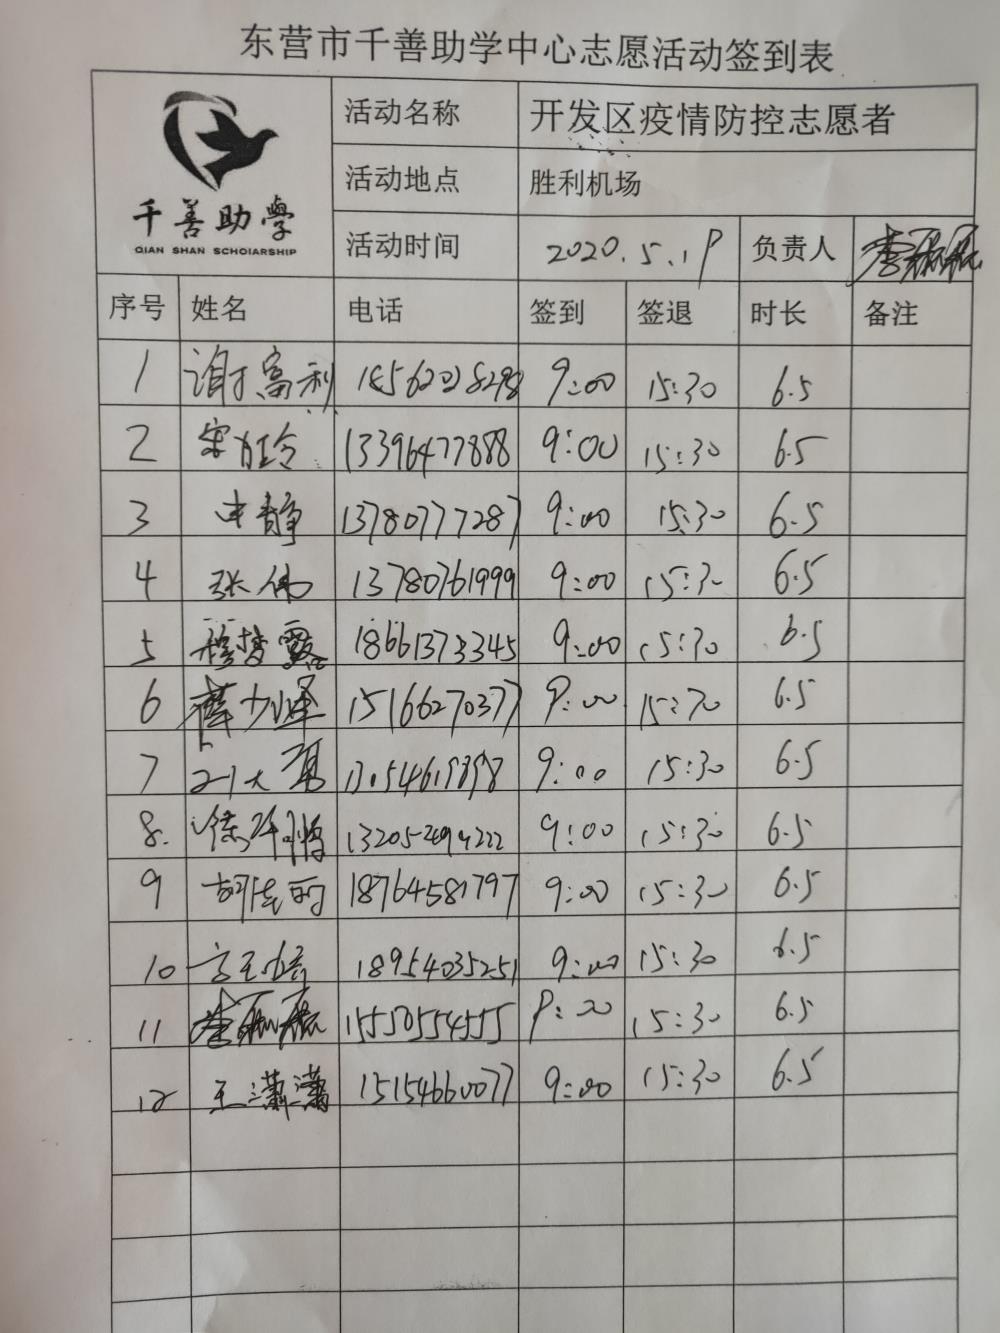 东营市千善助学中心志愿活动签到表
千善助學
QIAN SHAN SCHOIARSHIP
活动名称 开发区疫情防控志愿者
活动地点 胜利机场
活动时间 2020.5.19 负责人
序号 姓名 电话 签到 签退 时长 备注
1 谢富利 18562028298 9:00 15:30 6.5
2 宋玲 13396477888 9:00 15:30 6.5
3 申静 13780777287 9:00 15:30 6.5
4 张伟 13780761999 9:00 15:30 6.5
5 穆梦露 18661373345 9:00 15:30 6.5
6 薛少峰 15166270377 9:00 15:30 6.5
7 9:00 15:30 6.5
8. 徐 9:00 15:30 6.5
9 胡 18764581797 9:00 15:30 6.5
10 18954035251 9:00 15:30 6.5
11 15550554555 9:00 15:30 6.5
12 王潇潇 15154660077 9:00 15:30 6.5